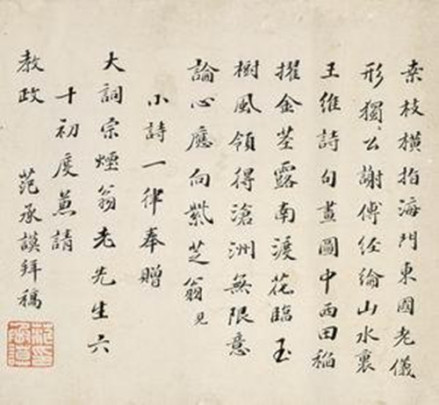 桒枝橫指海門東國老儀
形獨〻公謝傅经綸山水裏
王維詩句畫圖中雨田稻
擢金莖露南渡花臨玉
樹風領得滄洲無限意
論心應向紫芝翁見
小詩一律奉贈
大詞宗煙翁老先生六
十初度兼請
教政 范承謨拜稿